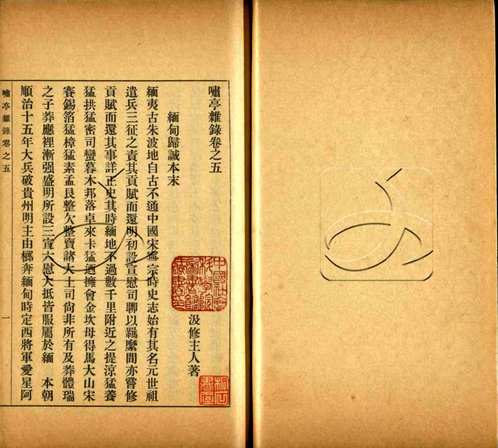 嘯亭雜錄卷之五
汲修主人著
緬甸歸誠本末
緬夷古朱波地自古不通中國宋寧宗時史志始有其名元世祖
遣兵三征之責其貢賦而還明初設宣慰司聊以羈縻間亦嘗修
貢賦而還其事詳正史其時緬地不過數千里附近之提涼猛養
猛拱猛密司蠻暮木邦落卓來卡猛廼擁會金坎母得馬大山宋
賽錫箔猛樟猛素孟艮整欠整賣諸大土司尙非所有及莽體瑞
之子莽應裡漸强盛明所設三宣六慰大抵皆服屬於緬 本朝
順治十五年大兵破貴州明主由榔奔緬甸時定西將軍愛星阿
嘯亭雜錄卷之五
一